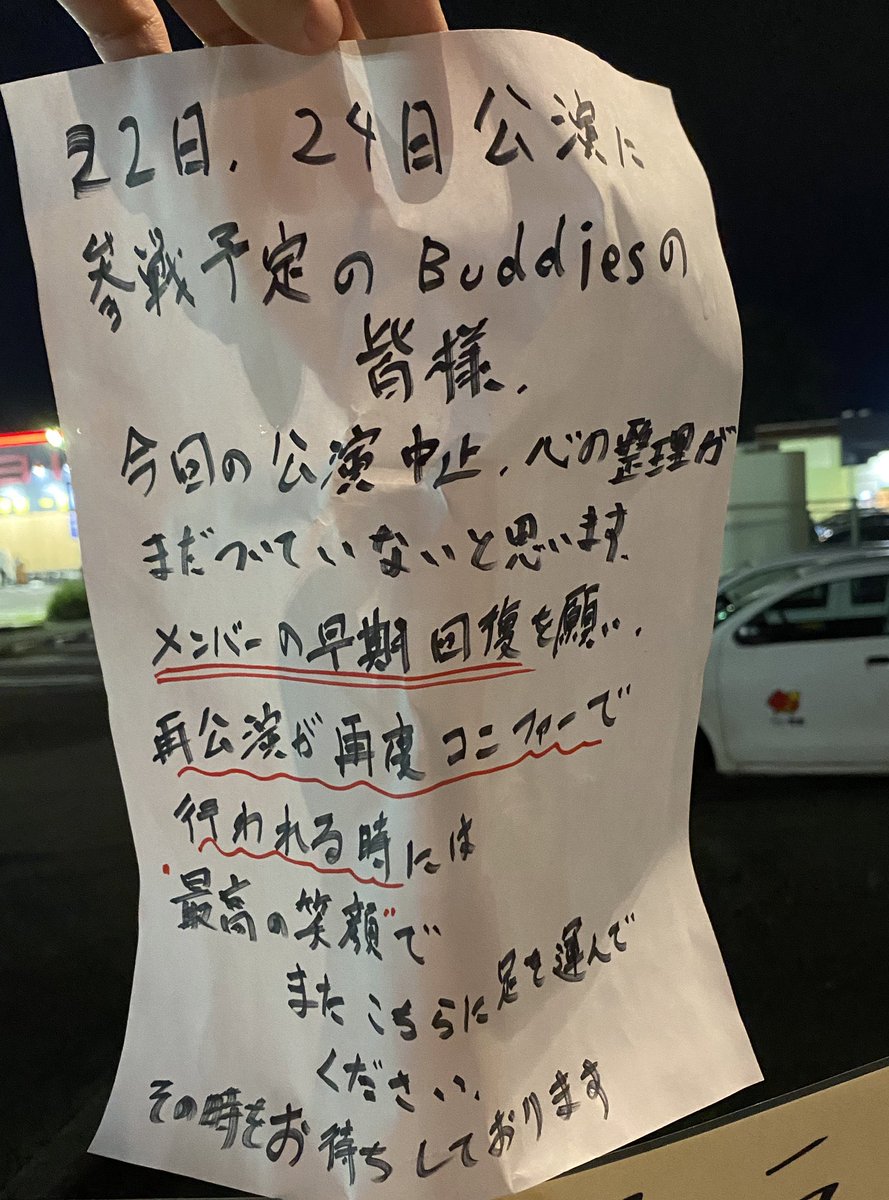 22日、24日公演に
参戦予定のBuddiesの
皆様、
今回の公演中止、心の整理が
まだついていないと思います。
メンバーの早期回復を願い、
再公演が再度コニファーで
行われる時には
"最高の笑顔"で
またこちらに足を運んで
ください、
その時をお待ちしております